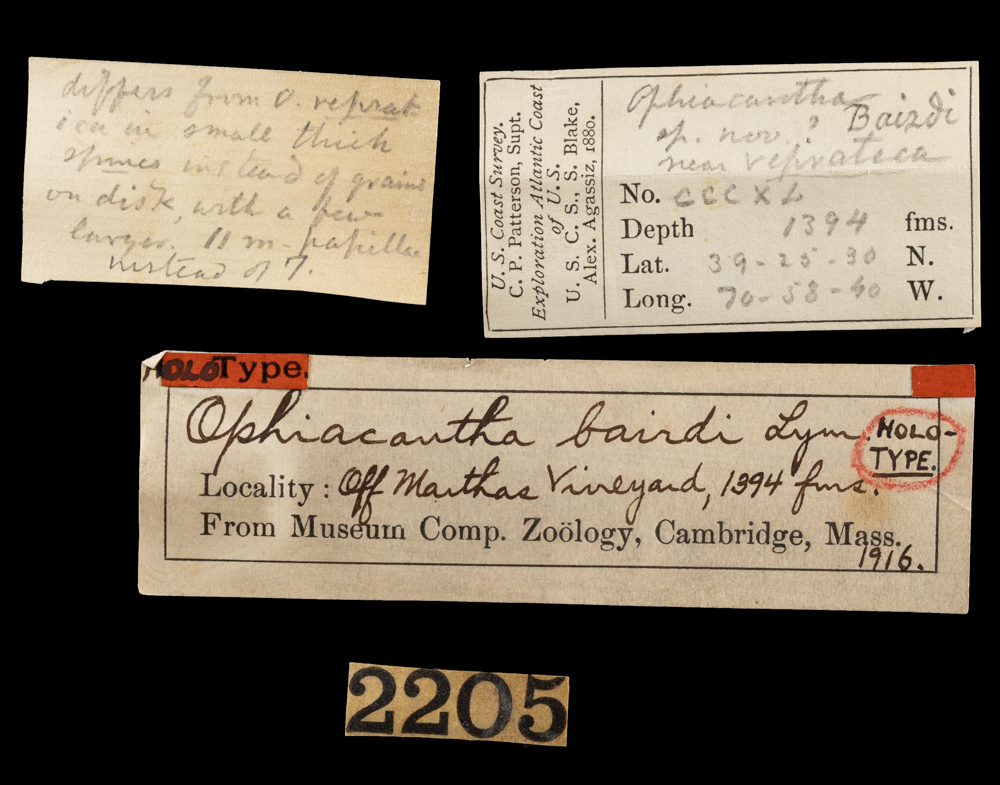 differs from O. vepratica
ica in small thick
spines instead of grains
on disk, with a few
larger. 11 m-papillae
instead of 7.
U. S. Coast Survey.
C. P. Patterson, Supt.
Exploration Atlantic Coast
of U. S.
U. S. C. S., S. Blake,
Alex. Agassiz, 1880.
Ophiacantha
sp. nov.? Bairdi
near vepratica
No. CCCXL
Depth 1394 fms.
Lat. 39-25-30 N.
Long. 70-58-40 W.
HOLOType.
Ophiacantha bairdi Lym. HOLO-
TYPE.
Locality: Off Marthas Vineyard, 1394 fms.
From Museum Comp. Zoölogy, Cambridge, Mass.
1916.
2205